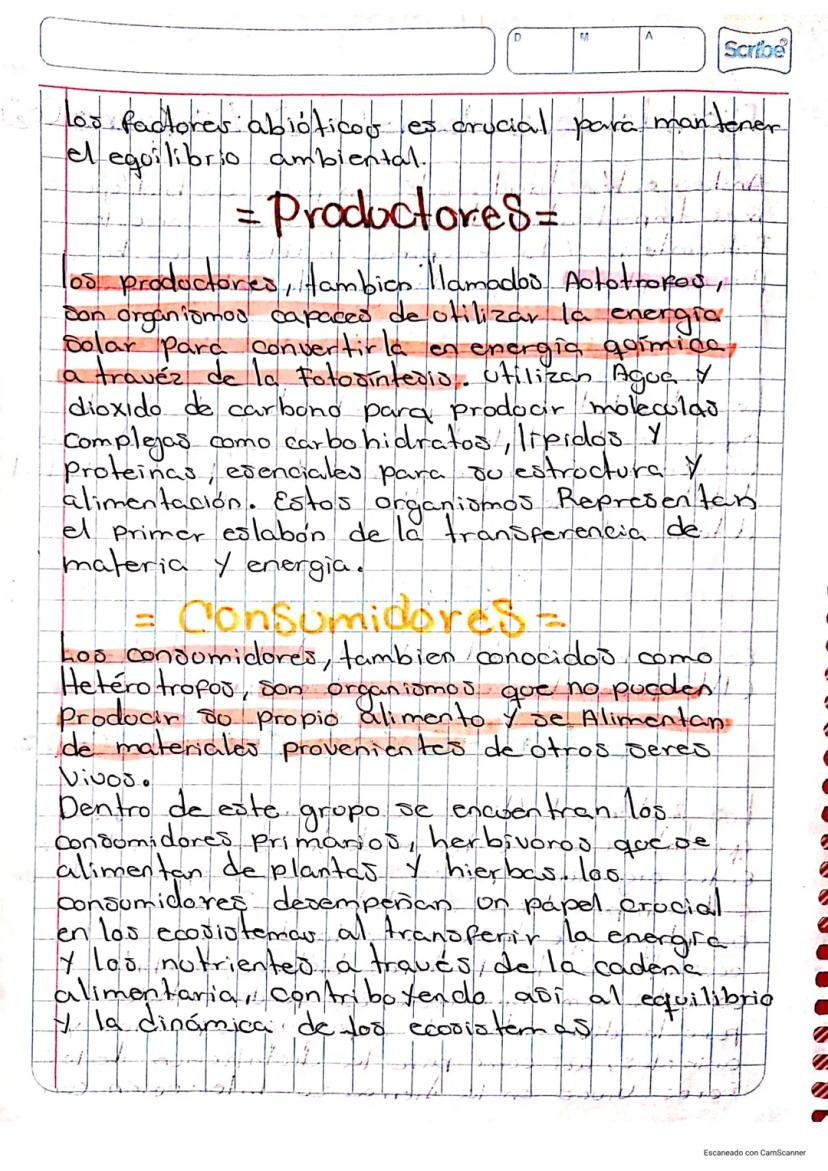 D M A
Scribe®
los factores abióticos es crucial para mantener
el equilibrio ambiental.
= Productores =
los productores, tambien llamados Autotrofos,
son organismos capaces de utilizar la energía
solar para convertirla en energía química
a travéz de la Fotosíntesis. Utilizan Agua y
dioxido de carbono para producir moleculas
complejas como carbohidratos, lípidos y
proteínas, esenciales para su estructura y
alimentación. Estos organismos Representan
el primer eslabón de la transferencia de
materia y energía.
= Consumidores =
Los consumidores, tambien conocidos como
Hetérotrofos, son organismos que no pueden
Producir su propio alimento y se Alimentan
de materiales provenientes de otros seres
vivos.
Dentro de este grupo se encuentran los
consumidores primarios, herbívoros que se
alimentan de plantas y hierbas. los
consumidores desempeñan un papel crucial
en los ecosistemas al transferir la energía
y los nutrientes a través de la cadena
alimentaria, contribuyendo así al equilibrio
y la dinámica de los ecosistemas
Escaneado con CamScanner